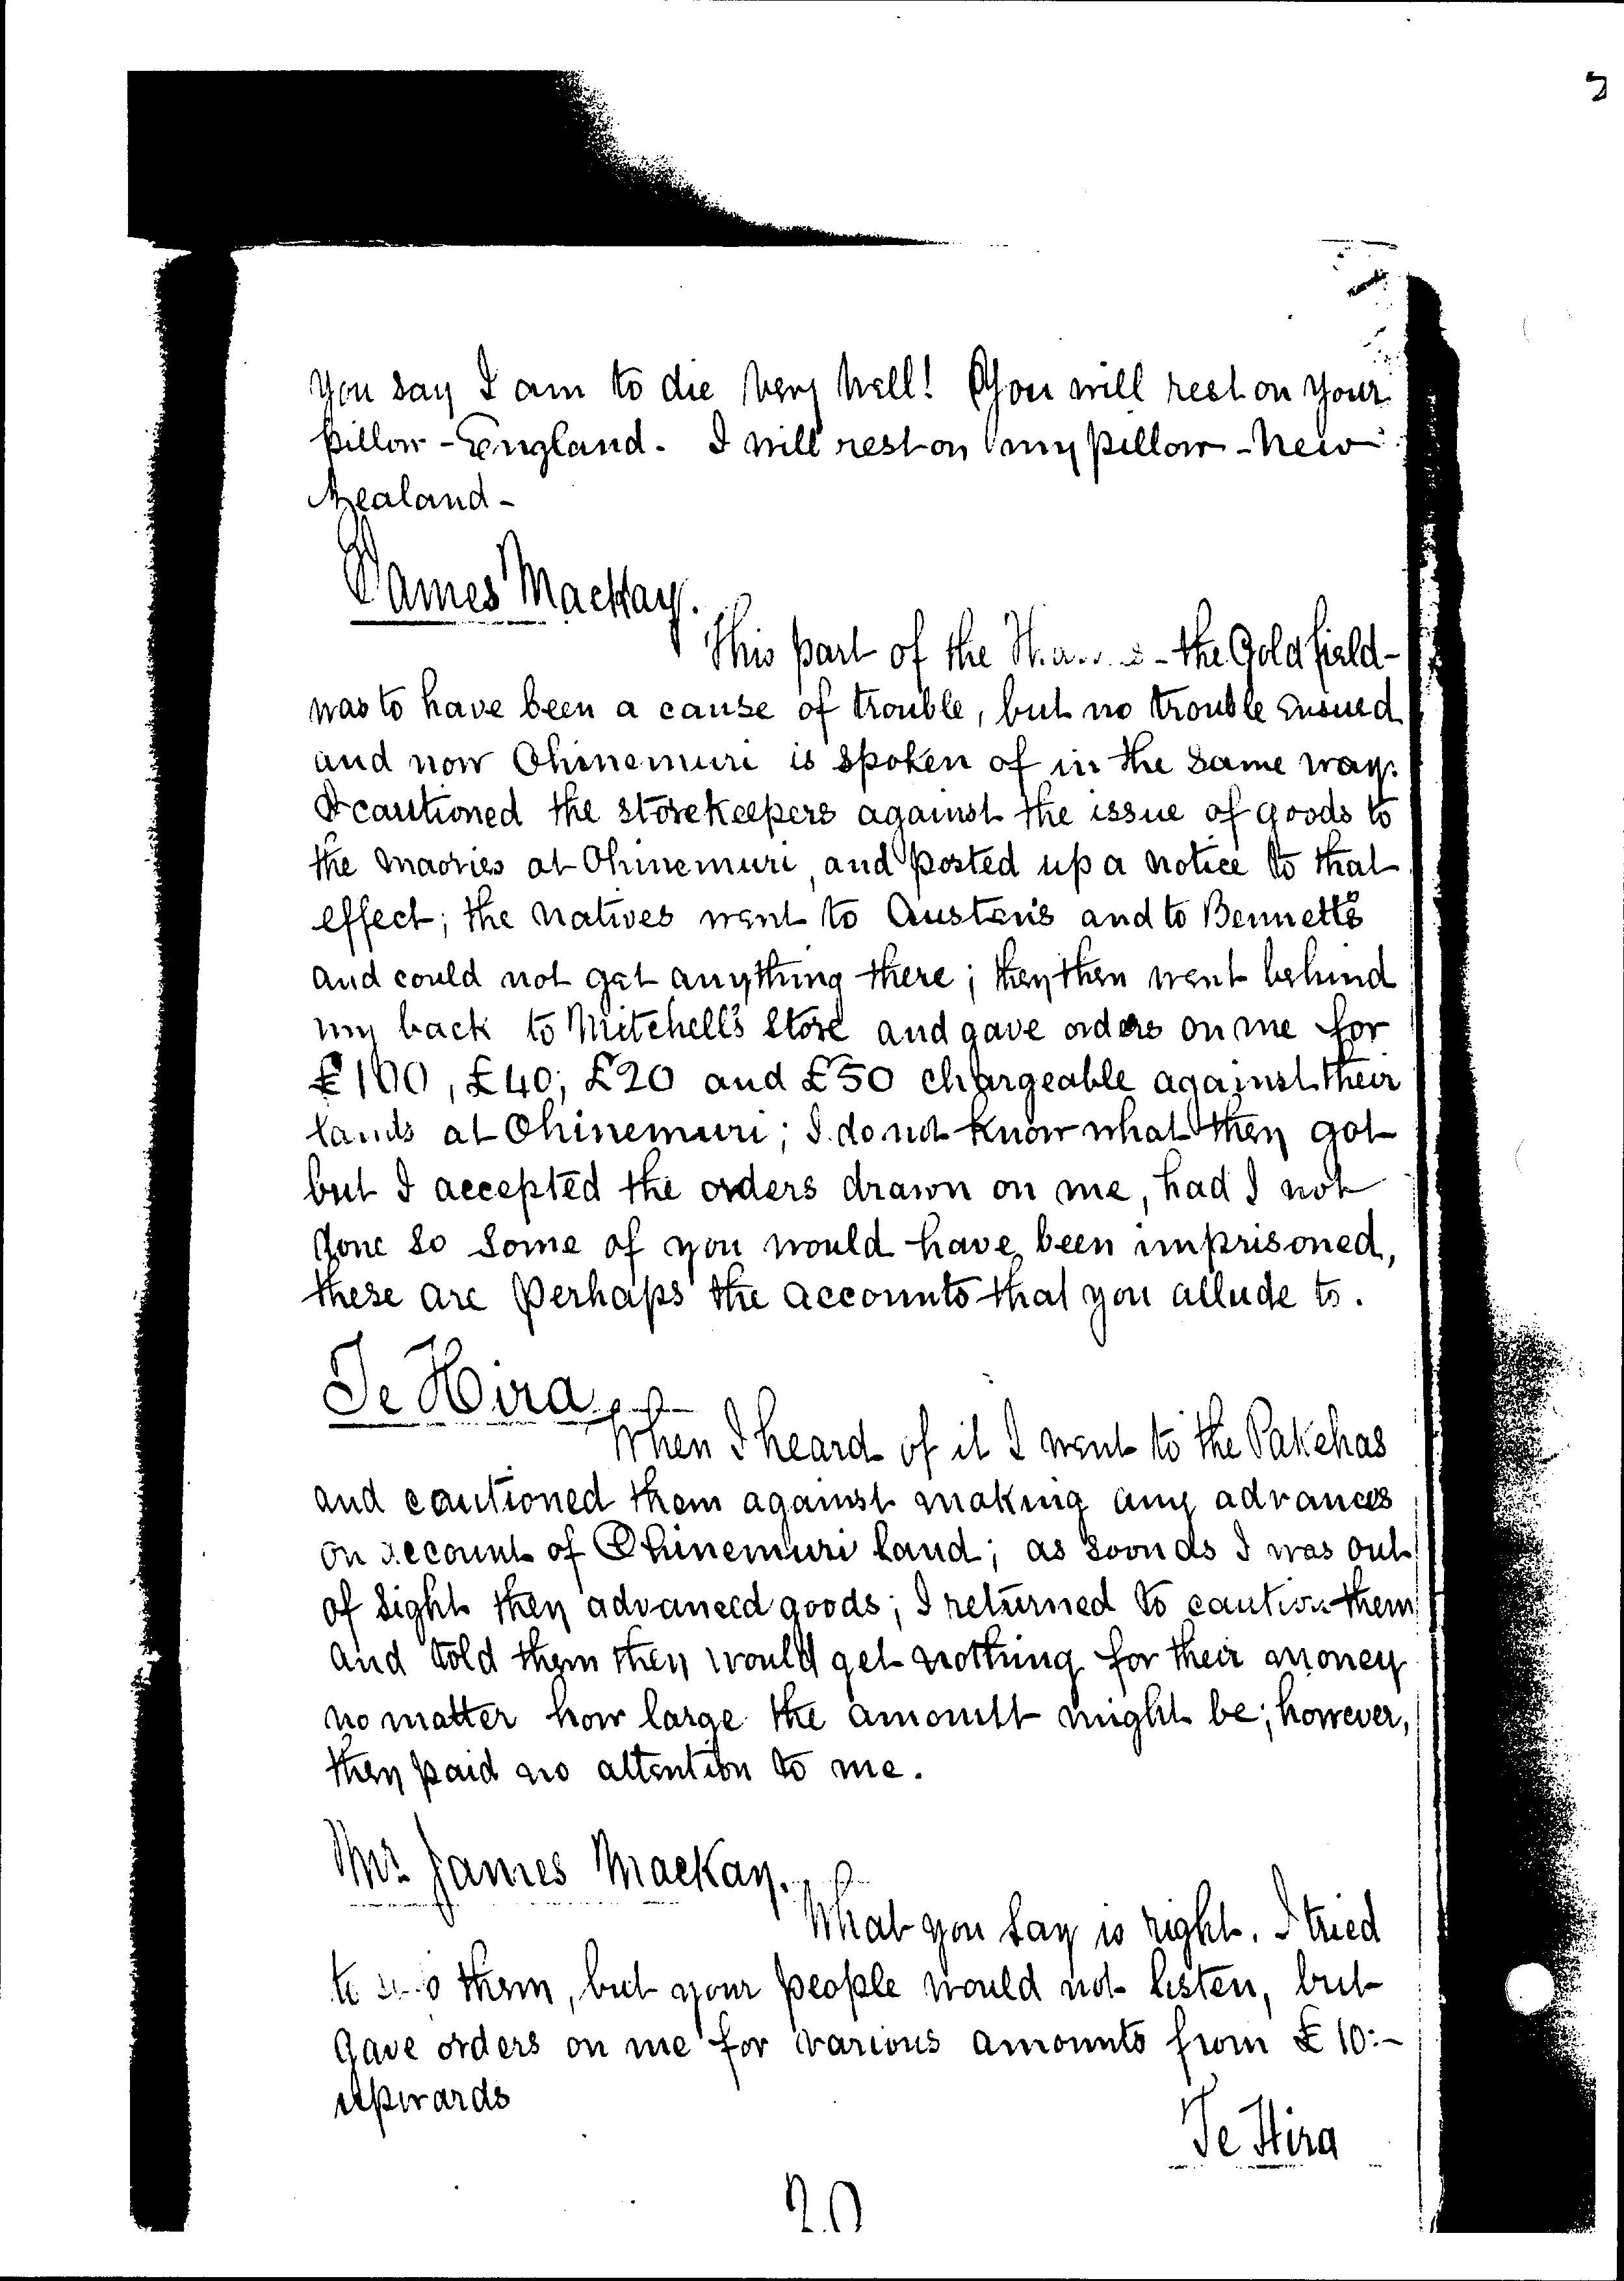 You say I am to die very well! You will rest on your
pillow - England - I will rest on my pillow - New
Zealand -
James Mackay.
This part of the - the Goldfield -
was to have been a cause of trouble, but no trouble ensued
and now Ohinemuri is spoken of in the same way.
I cautioned the storekeepers against the issue of goods to
the Maories at Ohinemuri, and posted up a notice to that
effect; the natives went to Austen's and to Bennett's
and could not get anything there; they then went behind
my back to Mitchell's Store and gave orders on me for
£100, £40, £20 and £50 chargeable against their
lands at Ohinemuri; I do not know what they got
but I accepted the orders drawn on me, had I not
done so some of you would have been imprisoned,
these are perhaps the accounts that you allude to.
Te Hira
When I heard of it I went to the Pakehas
and cautioned them against making any advances
on account of Ohinemuri land; as soon as I was out
of sight they advanced goods; I returned to caution them
and told them they would get nothing for their money
no matter how large the amount might be; however,
they paid no attention to me.
Mr. James Mackay.
What you say is right. I tried
to them, but your people would not listen, but
gave orders on me for various amounts from £10:-
upwards
Te Hira
20